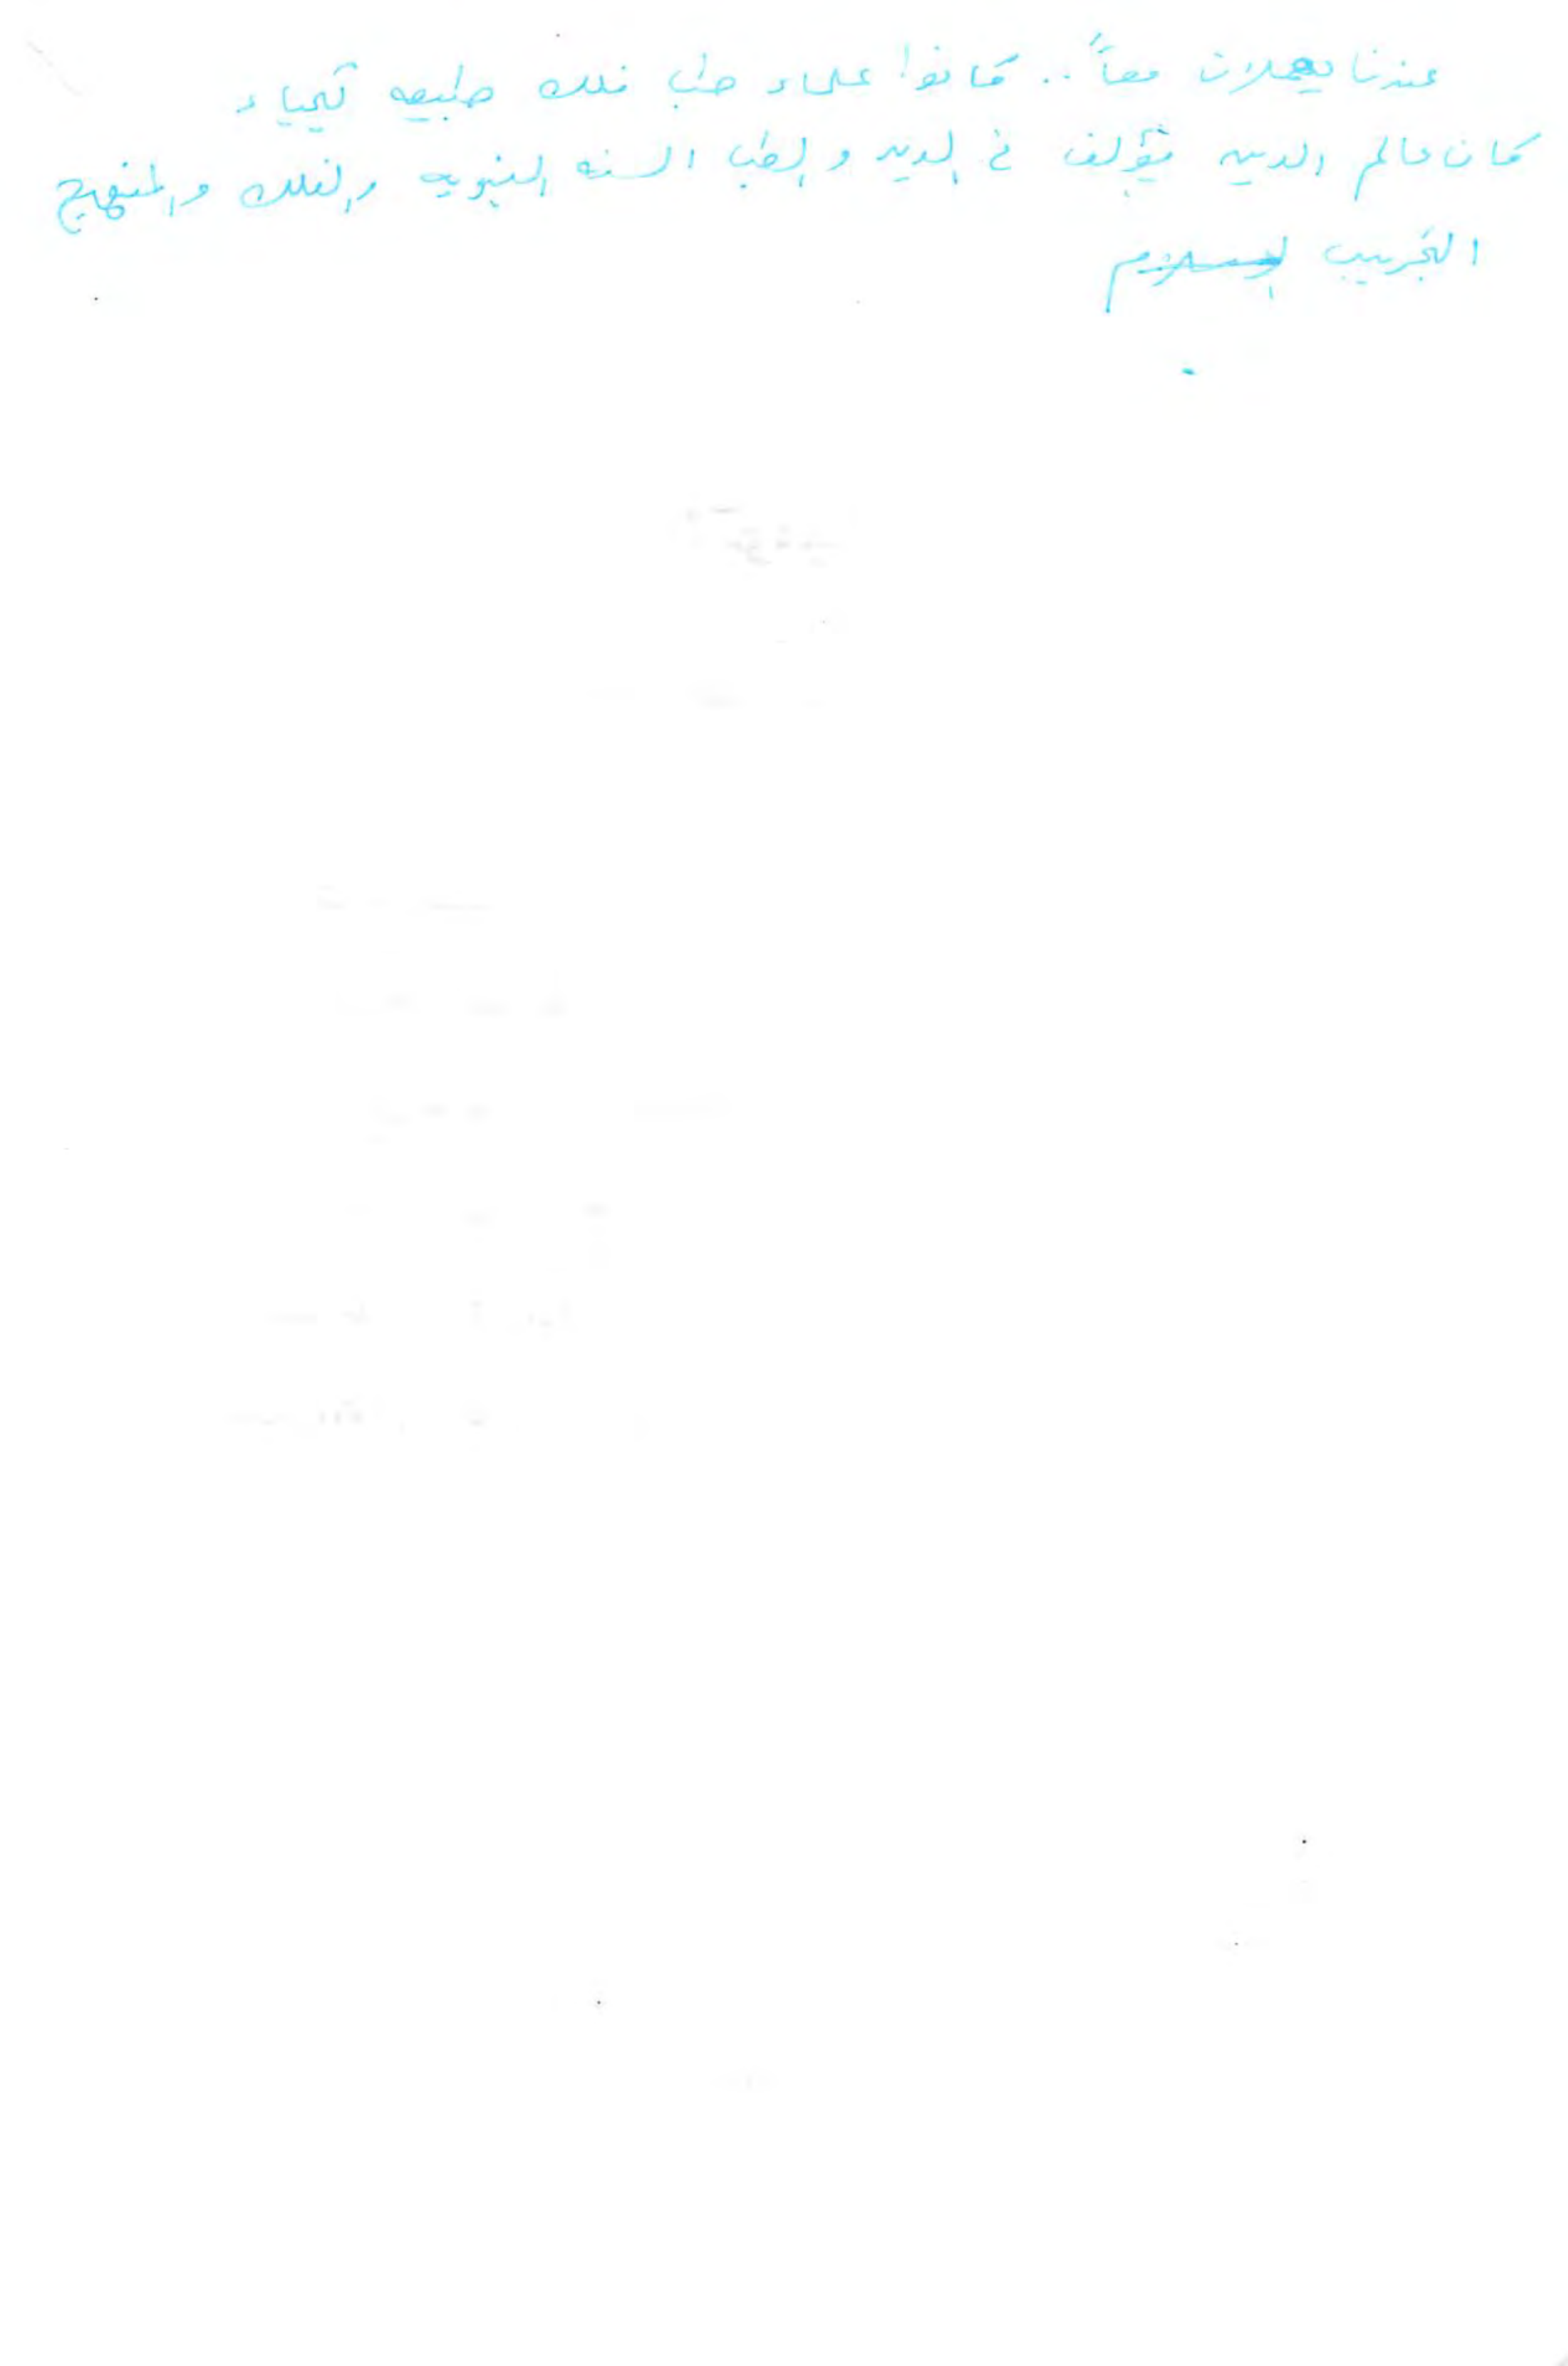 عندنا يعملان معاً .. كانوا علماء طب فلك طبيعه كيمياء
كان عالم الدين يؤلف في الدين والطب السنه النبويه والفلك والمنهج
التجريبي الإسلام